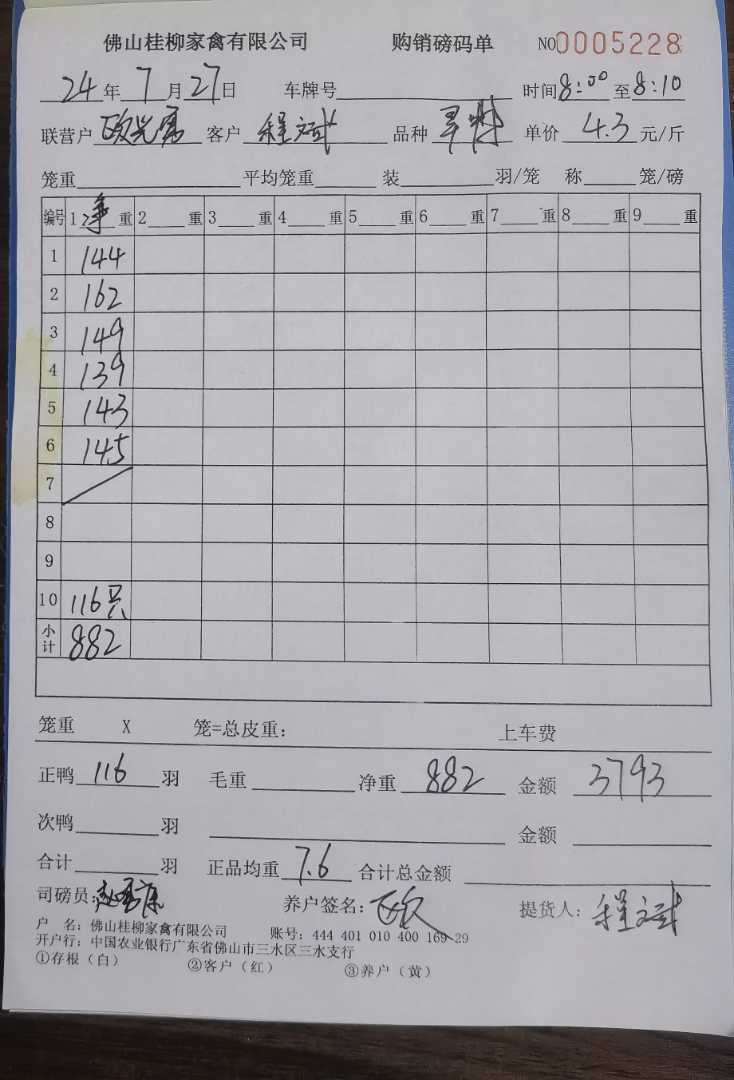 佛山桂柳家禽有限公司 购销磅码单 NO0005228
24年7月27日 车牌号 时间8:00至8:10
联营户 欧光勇 客户 程文斌 品种 单价 4.3 元/斤
笼重 平均笼重 装 羽/笼 称 笼/磅
编号 1 净 重 2 重 3 重 4 重 5 重 6 重 7 重 8 重 9 重
1 144
2 162
3 149
4 139
5 143
6 145
7
8
9
10 116只
小计 882
笼重 X 笼=总皮重: 上车费
正鸭 116 羽 毛重 净重 882 金额 3793
次鸭 羽 金额
合计 羽 正品均重 7.6 合计总金额
司磅员: 养户签名: 欧 提货人: 程文斌
户 名: 佛山桂柳家禽有限公司 账号: 444 401 010 400 169 29
开户行: 中国农业银行广东省佛山市三水区三水支行
①存根（白） ②客户（红） ③养户（黄）